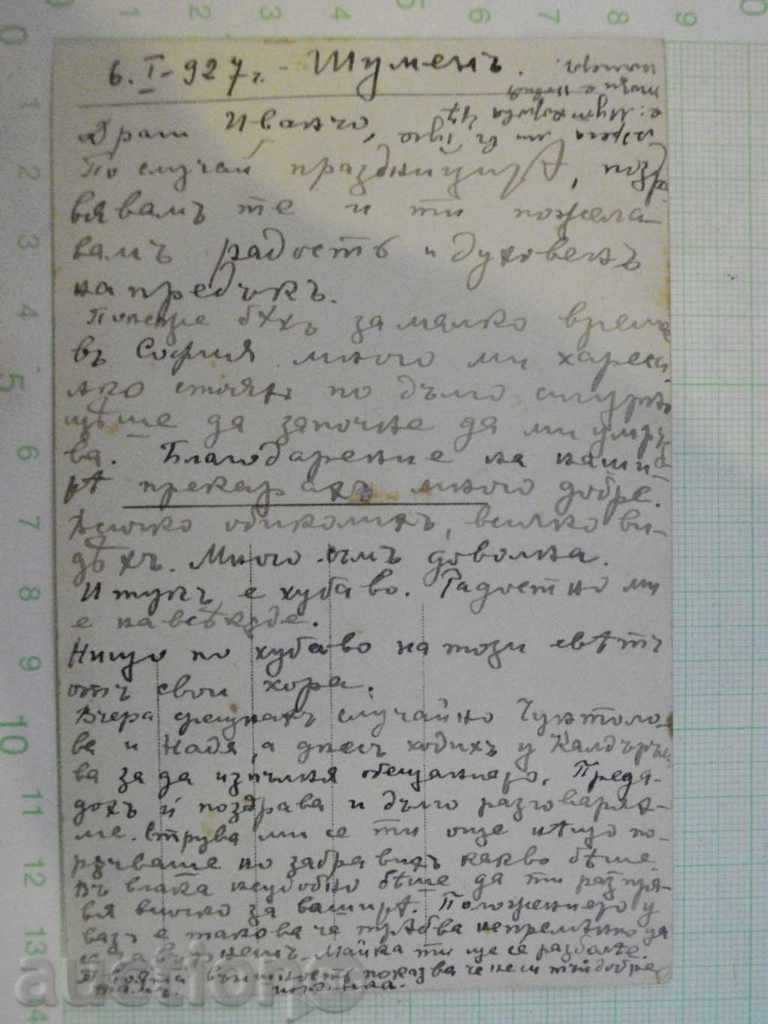 6. I - 927 г. - Шуменъ.
Драги Иванчо,
По случай празницитѣ, поздра
вявамъ те и ти пожела
вамъ радость и духовенъ
напредъкъ.
Понеже бѣхъ за малко време
въ София много ми хареса
ако стоях по дълго сигурно
щѣше да започне да ми умръз
ва. Благодарение на наши
тѣ прекарахъ много добре.
Всичко обиколихъ, всичко ви-
дѣхъ. Много съмъ доволна.
И тукъ е хубаво. Радостно ми
е навсѣкѫде.
Нищо по хубаво на този свѣтъ
отъ свои хора.
Вчера срещнахъ случайно
ва и Надя, а днесъ ходихъ у Калдъръм
ва за да изпълня обещанието. Преда-
дохъ ѝ поздрава и дълго разговаряхъ
ме. Струва ми се ти още нѣщо по-
рѫчваше но забравихъ какво бѣше.
Въ влака неудобно бѣше да ти разпра-
вя всичко за вашитѣ. Положението у
васъ е такова че трѣбва непремѣнно да
се завърнешъ. Майка ти ще се разболѣе.
Твоята външность показва че не си тъй добре
тамъ.